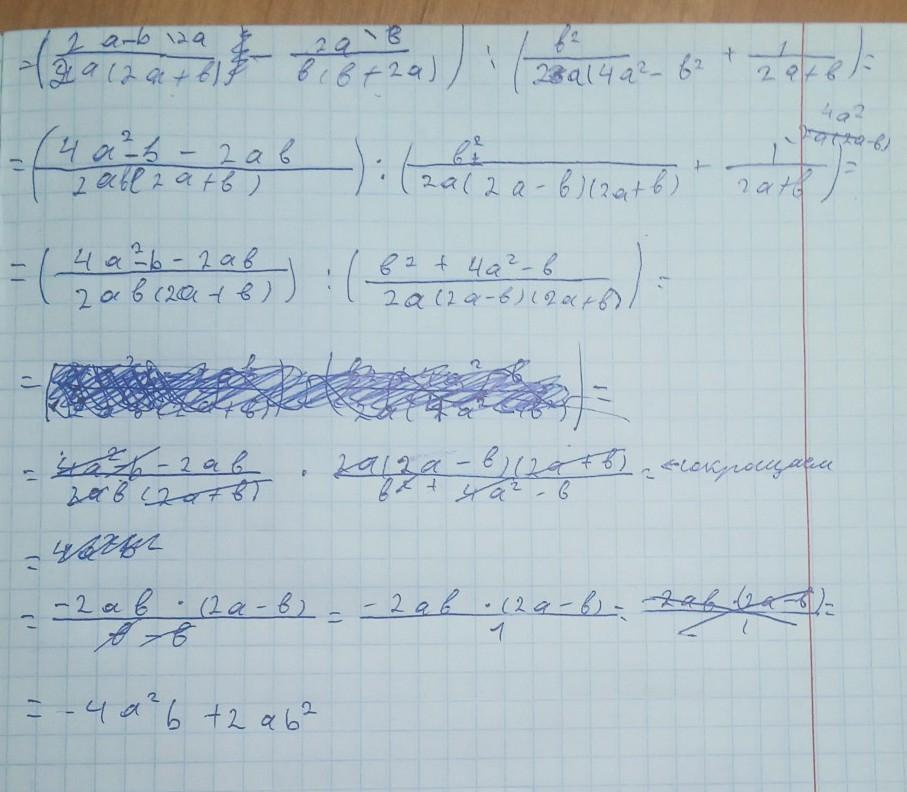 =(2a-b\2a / 2a(2a+b) - 2a\b / b(b+2a)) : (b² / 2a(4a²-b² + 1 / 2a+b)=
=(4a²-b-2ab / 2ab(2a+b)) : (b² / 2a(2a-b)(2a+b) + 1 / 2a+b)= 4a² / 2a(2a-b)
=(4a²-b-2ab / 2ab(2a+b)) : (b²+4a²-b / 2a(2a-b)(2a+b))=
=( )=
=4a²-b-2ab / 2ab(2a+b) · 2a(2a-b)(2a+b) / b²+4a²-b = ←сокращаем
=
=-2ab·(2a-b) / b-b = -2ab·(2a-b) / 1 = 2ab·(2a-b) / 1 =
=-4a²b+2ab²